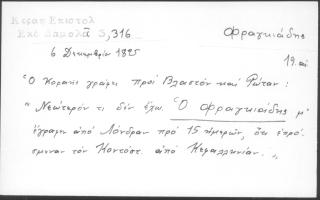 Κοραη Επιστολ
Εκδ Δαμαλᾶ 3,316
Φραγκιάδης
6 Δεκεμβρίου 1825
19. αἰ
Ὁ Κοραης γράφει πρός Βλαστόν καί Ρώταν:
"Νεώτερόν τι δέν ἔχω. Ὁ Φραγκιάδης μ'
ἔγραψεν ἀπό Λόνδραν πρό 15 ἡμερῶν, ὅτι ἐπρόσ
μεναν τόν Κοντόστ. ἀπό Κεφαλληνίαν."